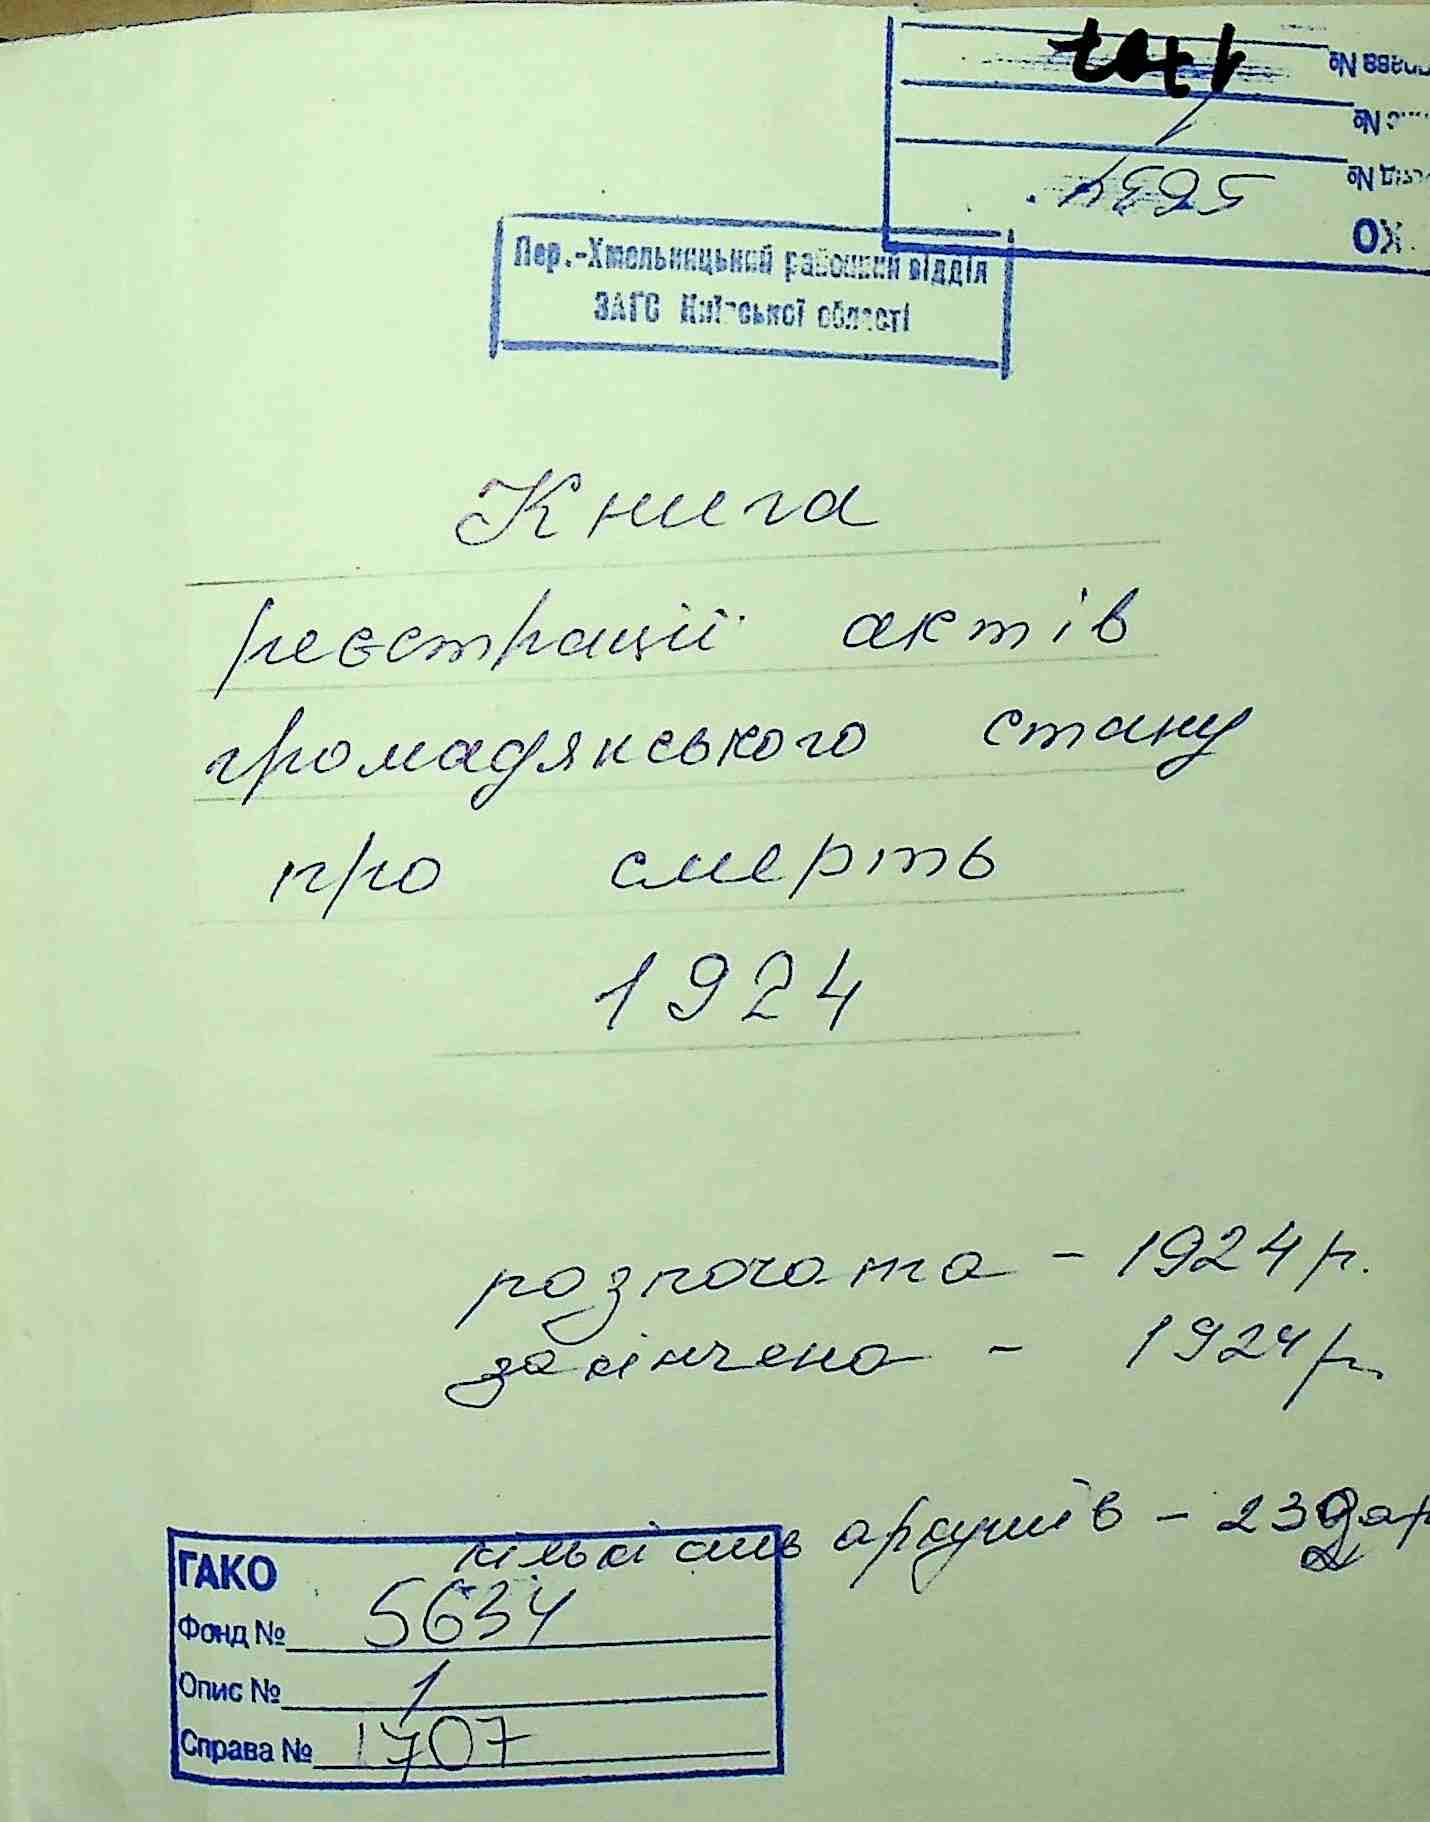 справа №
1707
№
1
№
5634.
КО
Пер.-Хмельницький районний відділ
ЗАГС Київської області
Книга
реєстрації актів
громадянського стану
про смерть
1924
розпочата - 1924 р.
закінчена - 1924 р.
кількість аркушів -
ГАКО
Фонд № 5634
Опис № 1
Справа № 1707